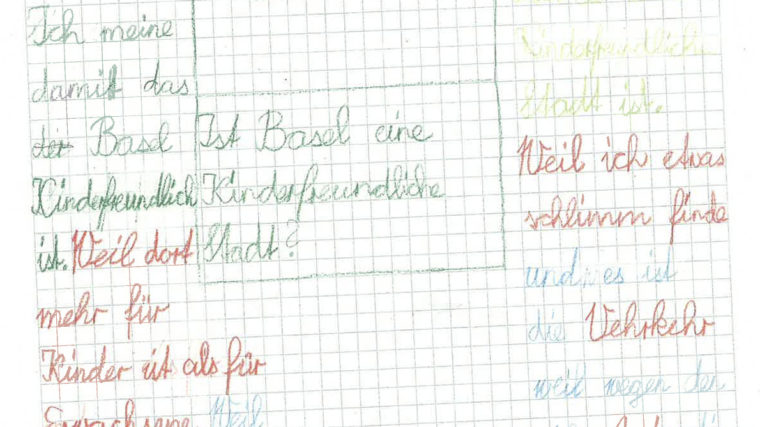 Ich meine
damit das
der Basel
Kinderfreundlich
ist. Weil dort
mehr für
Kinder ist als für
Erwachsene Weil
Ist Basel eine
Kinderfreundliche
Stadt?
Kinderfreundlich
Stadt ist.
Weil ich etwas
schlimm finde
und es ist
die Vehrkehr
weil wegen den